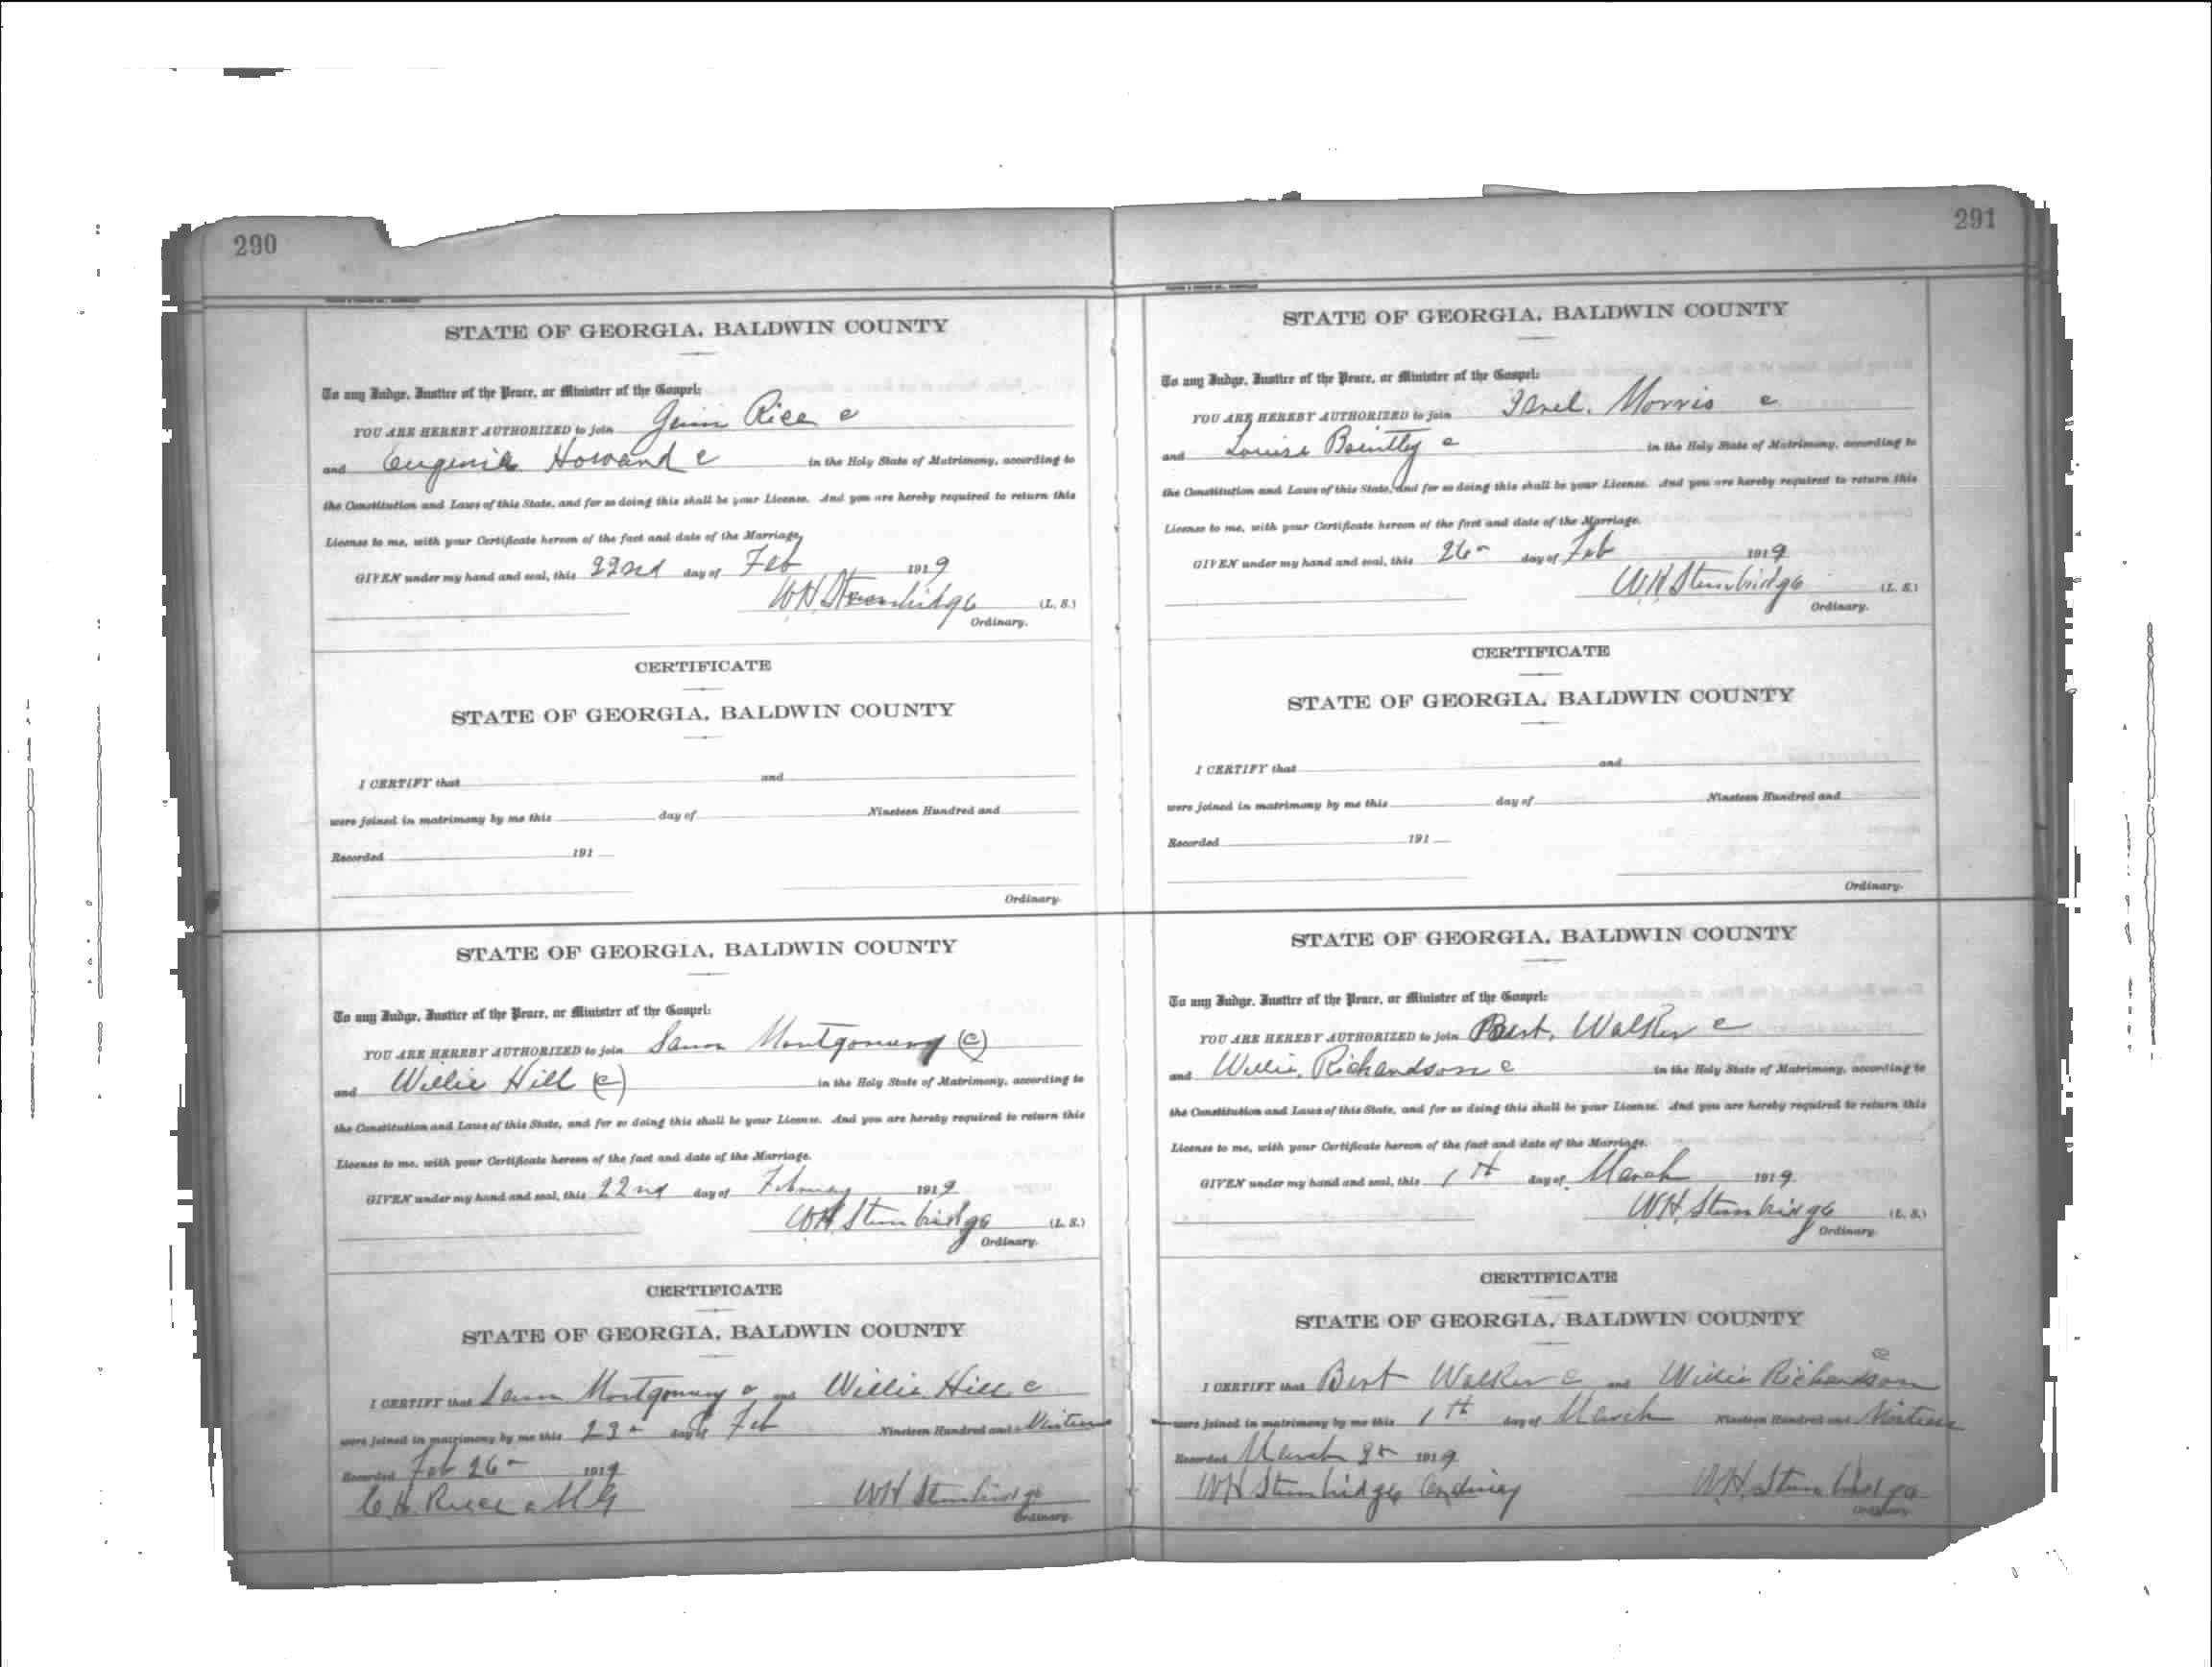 290
STATE OF GEORGIA, BALDWIN COUNTY
To any Judge, Justice of the Peace, or Minister of the Gospel:
YOU ARE HEREBY AUTHORIZED to join Rice c
and Eugenia Howard c in the Holy State of Matrimony, according to
the Constitution and Laws of this State, and for so doing this shall be your License. And you are hereby required to return this
License to me, with your Certificate hereon of the fact and date of the Marriage.
GIVEN under my hand and seal, this 22nd day of Feb 1919
W H Stembridge (L. S.)
Ordinary.
CERTIFICATE
STATE OF GEORGIA, BALDWIN COUNTY
I CERTIFY that and
were joined in matrimony by me this day of Nineteen Hundred and
Recorded 191
Ordinary.
STATE OF GEORGIA, BALDWIN COUNTY
To any Judge, Justice of the Peace, or Minister of the Gospel:
YOU ARE HEREBY AUTHORIZED to join Montgomery (c)
and Willie Hill (c) in the Holy State of Matrimony, according to
the Constitution and Laws of this State, and for so doing this shall be your License. And you are hereby required to return this
License to me, with your Certificate hereon of the fact and date of the Marriage.
GIVEN under my hand and seal, this 22nd day of February 1919
W H Stembridge (L. S.)
Ordinary.
CERTIFICATE
STATE OF GEORGIA, BALDWIN COUNTY
I CERTIFY that Montgomery c and Willie Hill c
were joined in matrimony by me this 23 day of Feb Nineteen Hundred and Nineteen
Recorded Feb 26 1919
W H Stembridge
Ordinary.
291
STATE OF GEORGIA, BALDWIN COUNTY
To any Judge, Justice of the Peace, or Minister of the Gospel:
YOU ARE HEREBY AUTHORIZED to join Morris c
and Louise c in the Holy State of Matrimony, according to
the Constitution and Laws of this State, and for so doing this shall be your License. And you are hereby required to return this
License to me, with your Certificate hereon of the fact and date of the Marriage.
GIVEN under my hand and seal, this 26 day of Feb 1919
W H Stembridge (L. S.)
Ordinary.
CERTIFICATE
STATE OF GEORGIA, BALDWIN COUNTY
I CERTIFY that and
were joined in matrimony by me this day of Nineteen Hundred and
Recorded 191
Ordinary.
STATE OF GEORGIA, BALDWIN COUNTY
To any Judge, Justice of the Peace, or Minister of the Gospel:
YOU ARE HEREBY AUTHORIZED to join Bert. Walker c
and Willie Richardson c in the Holy State of Matrimony, according to
the Constitution and Laws of this State, and for so doing this shall be your License. And you are hereby required to return this
License to me, with your Certificate hereon of the fact and date of the Marriage.
GIVEN under my hand and seal, this 1th day of March 1919
W H Stembridge (L. S.)
Ordinary
CERTIFICATE
STATE OF GEORGIA, BALDWIN COUNTY
I CERTIFY that Bert Walker c and Willie Richardson c
were joined in matrimony by me this 1th day of March Nineteen Hundred and Nineteen
Recorded March 1919
W H Stembridge Ordinary W H Stembridge
Ordinary.